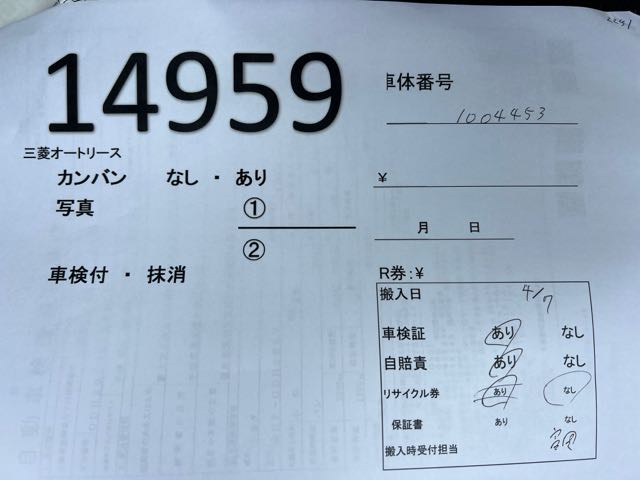 14959
三菱オートリース
カンバン なし ・ あり
写真 ①
②
車検付 ・ 抹消
車体番号
1004453
¥
月 日
R券:¥
搬入日 4/7
車検証 あり なし
自賠責 あり なし
リサイクル券 あり なし
保証書 あり なし
搬入時受付担当